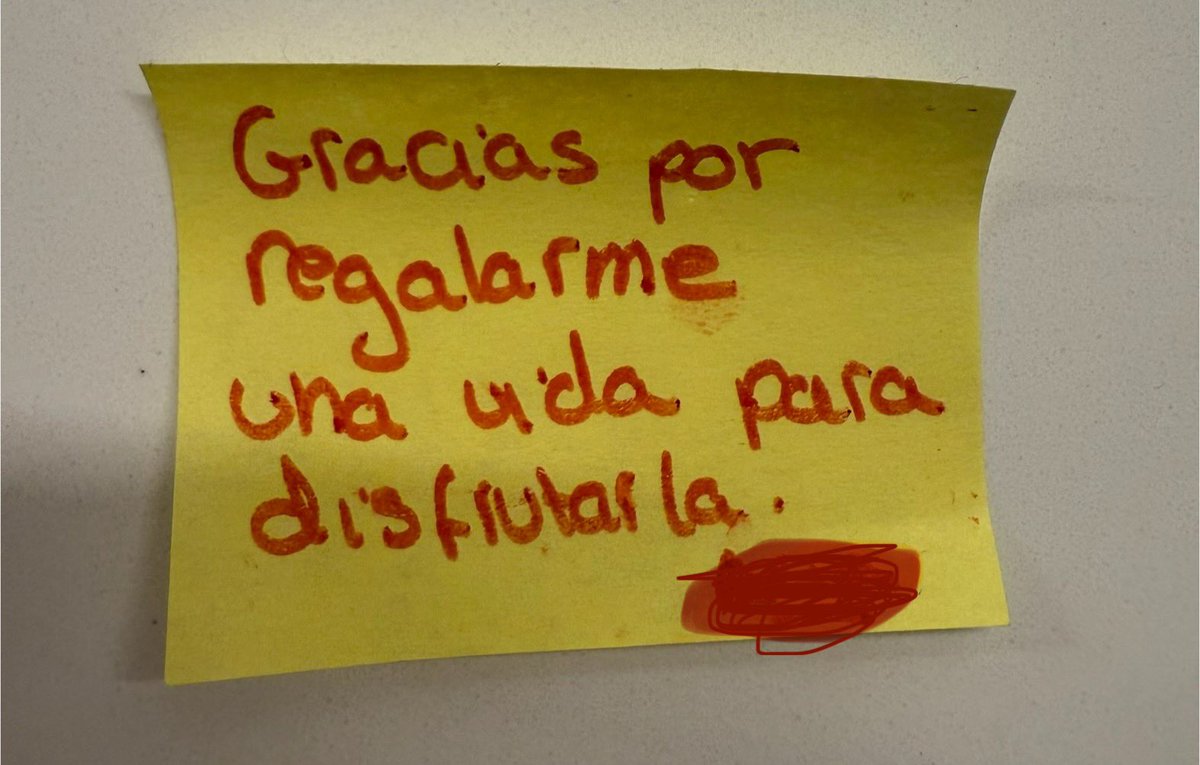 Gracias por
regalarme
una vida para
disfrutarla.